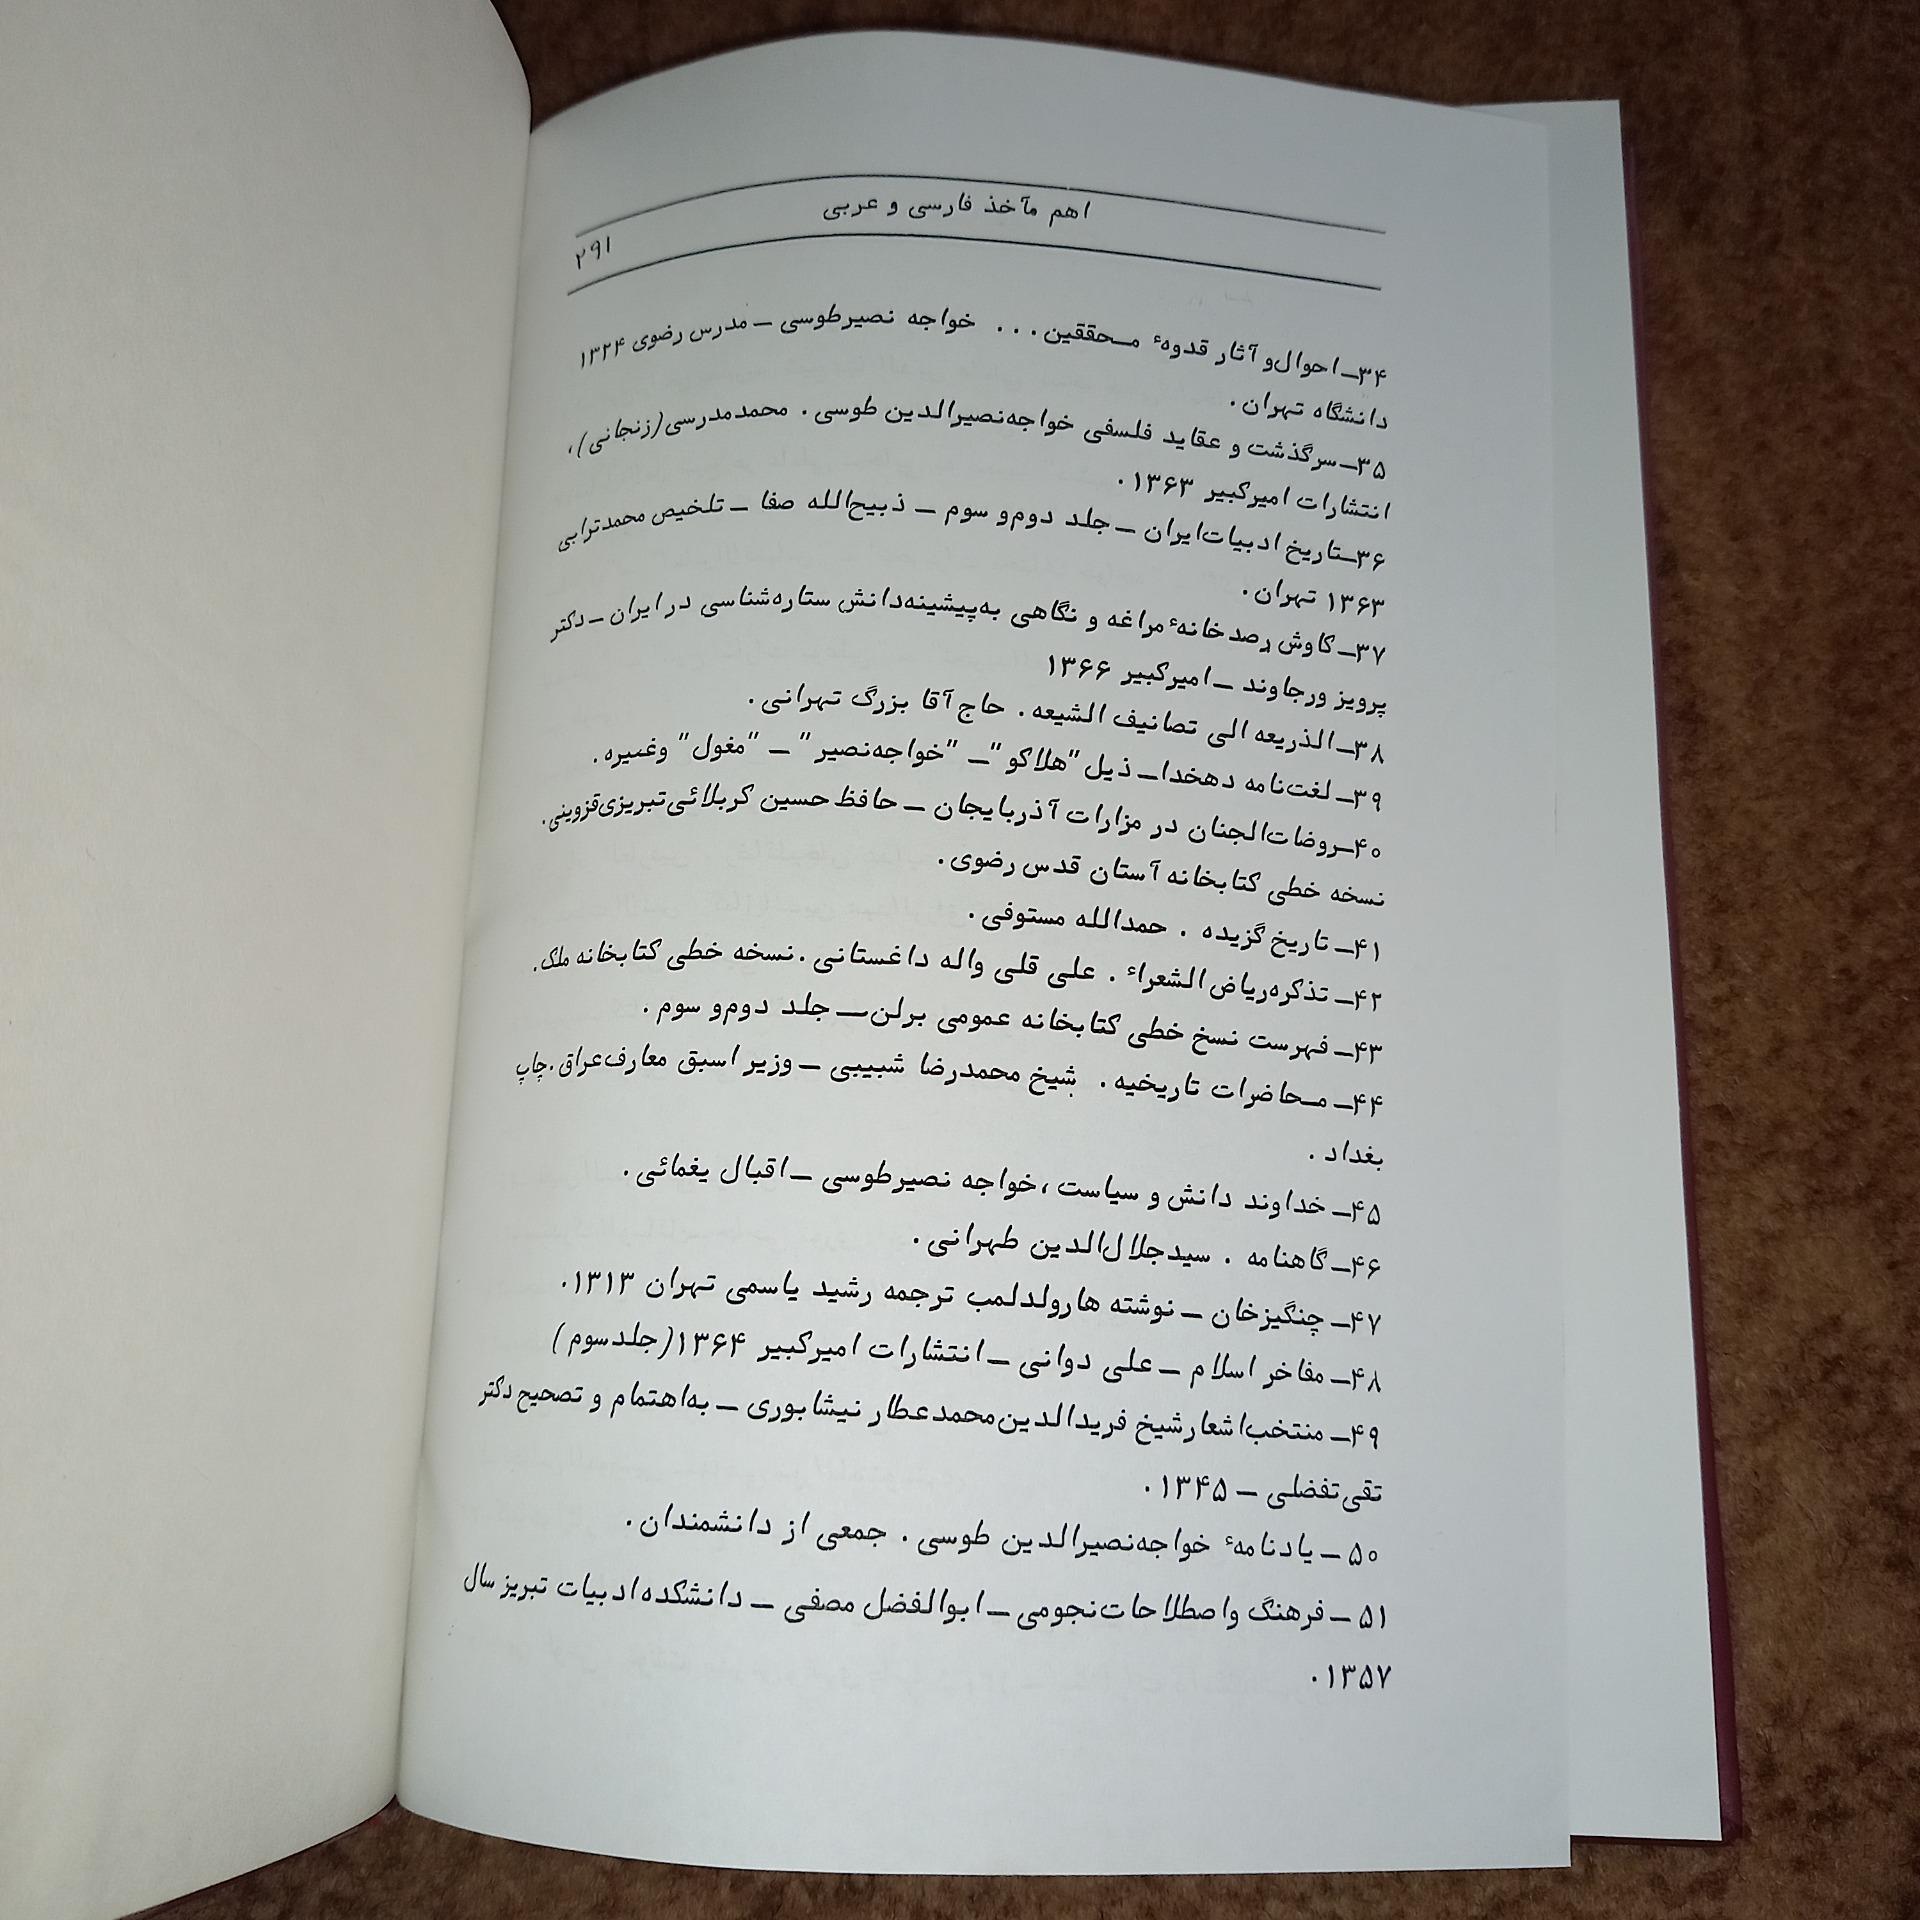 اهم مآخذ فارسی و عربی
۲۹۱
۳۴ـ احوال و آثار قدوهٔ محققین... خواجه نصیرطوسی ـ مدرس رضوی ۱۳۲۴
دانشگاه تهران.
۳۵ـ سرگذشت و عقاید فلسفی خواجه‌نصیرالدین طوسی. محمدمدرسی(زنجانی)،
انتشارات امیرکبیر ۱۳۶۳.
۳۶ـ تاریخ ادبیات ایران ـ جلد دوم و سوم ـ ذبیح‌الله صفا ـ تلخیص محمدترابی
۱۳۶۳ تهران.
۳۷ـ کاوش رصدخانهٔ مراغه و نگاهی به‌پیشینه‌دانش ستاره‌شناسی در ایران ـ دکتر
پرویز ورجاوند ـ امیرکبیر ۱۳۶۶
۳۸ـ الذریعه الی تصانیف الشیعه. حاج آقا بزرگ تهرانی.
۳۹ـ لغت‌نامه دهخدا ـ ذیل "هلاکو" ـ "خواجه‌نصیر" ـ "مغول" وغیره.
۴۰ـ روضات‌الجنان در مزارات آذربایجان ـ حافظ حسین کربلائی تبریزی قزوینی.
نسخه خطی کتابخانه آستان قدس رضوی.
۴۱ـ تاریخ گزیده. حمدالله مستوفی.
۴۲ـ تذکره‌ریاض الشعراء. علی قلی واله داغستانی. نسخه خطی کتابخانه ملک.
۴۳ـ فهرست نسخ خطی کتابخانه عمومی برلن ـ جلد دوم و سوم.
۴۴ـ محاضرات تاریخیه. شیخ محمدرضا شبیبی ـ وزیر اسبق معارف عراق. چاپ
بغداد.
۴۵ـ خداوند دانش و سیاست، خواجه نصیرطوسی ـ اقبال یغمائی.
۴۶ـ گاهنامه. سیدجلال‌الدین طهرانی.
۴۷ـ چنگیزخان ـ نوشته هارولدلمب ترجمه رشید یاسمی تهران ۱۳۱۳.
۴۸ـ مفاخر اسلام ـ علی دوانی ـ انتشارات امیرکبیر ۱۳۶۴(جلد سوم)
۴۹ـ منتخب اشعار شیخ فریدالدین محمد عطار نیشابوری ـ به‌اهتمام و تصحیح دکتر
تقی‌تفضلی ـ ۱۳۴۵.
۵۰ـ یادنامهٔ خواجه‌نصیرالدین طوسی. جمعی از دانشمندان.
۵۱ـ فرهنگ واصطلاحات نجومی ـ ابوالفضل مصفی ـ دانشکده ادبیات تبریز سال
۱۳۵۷.